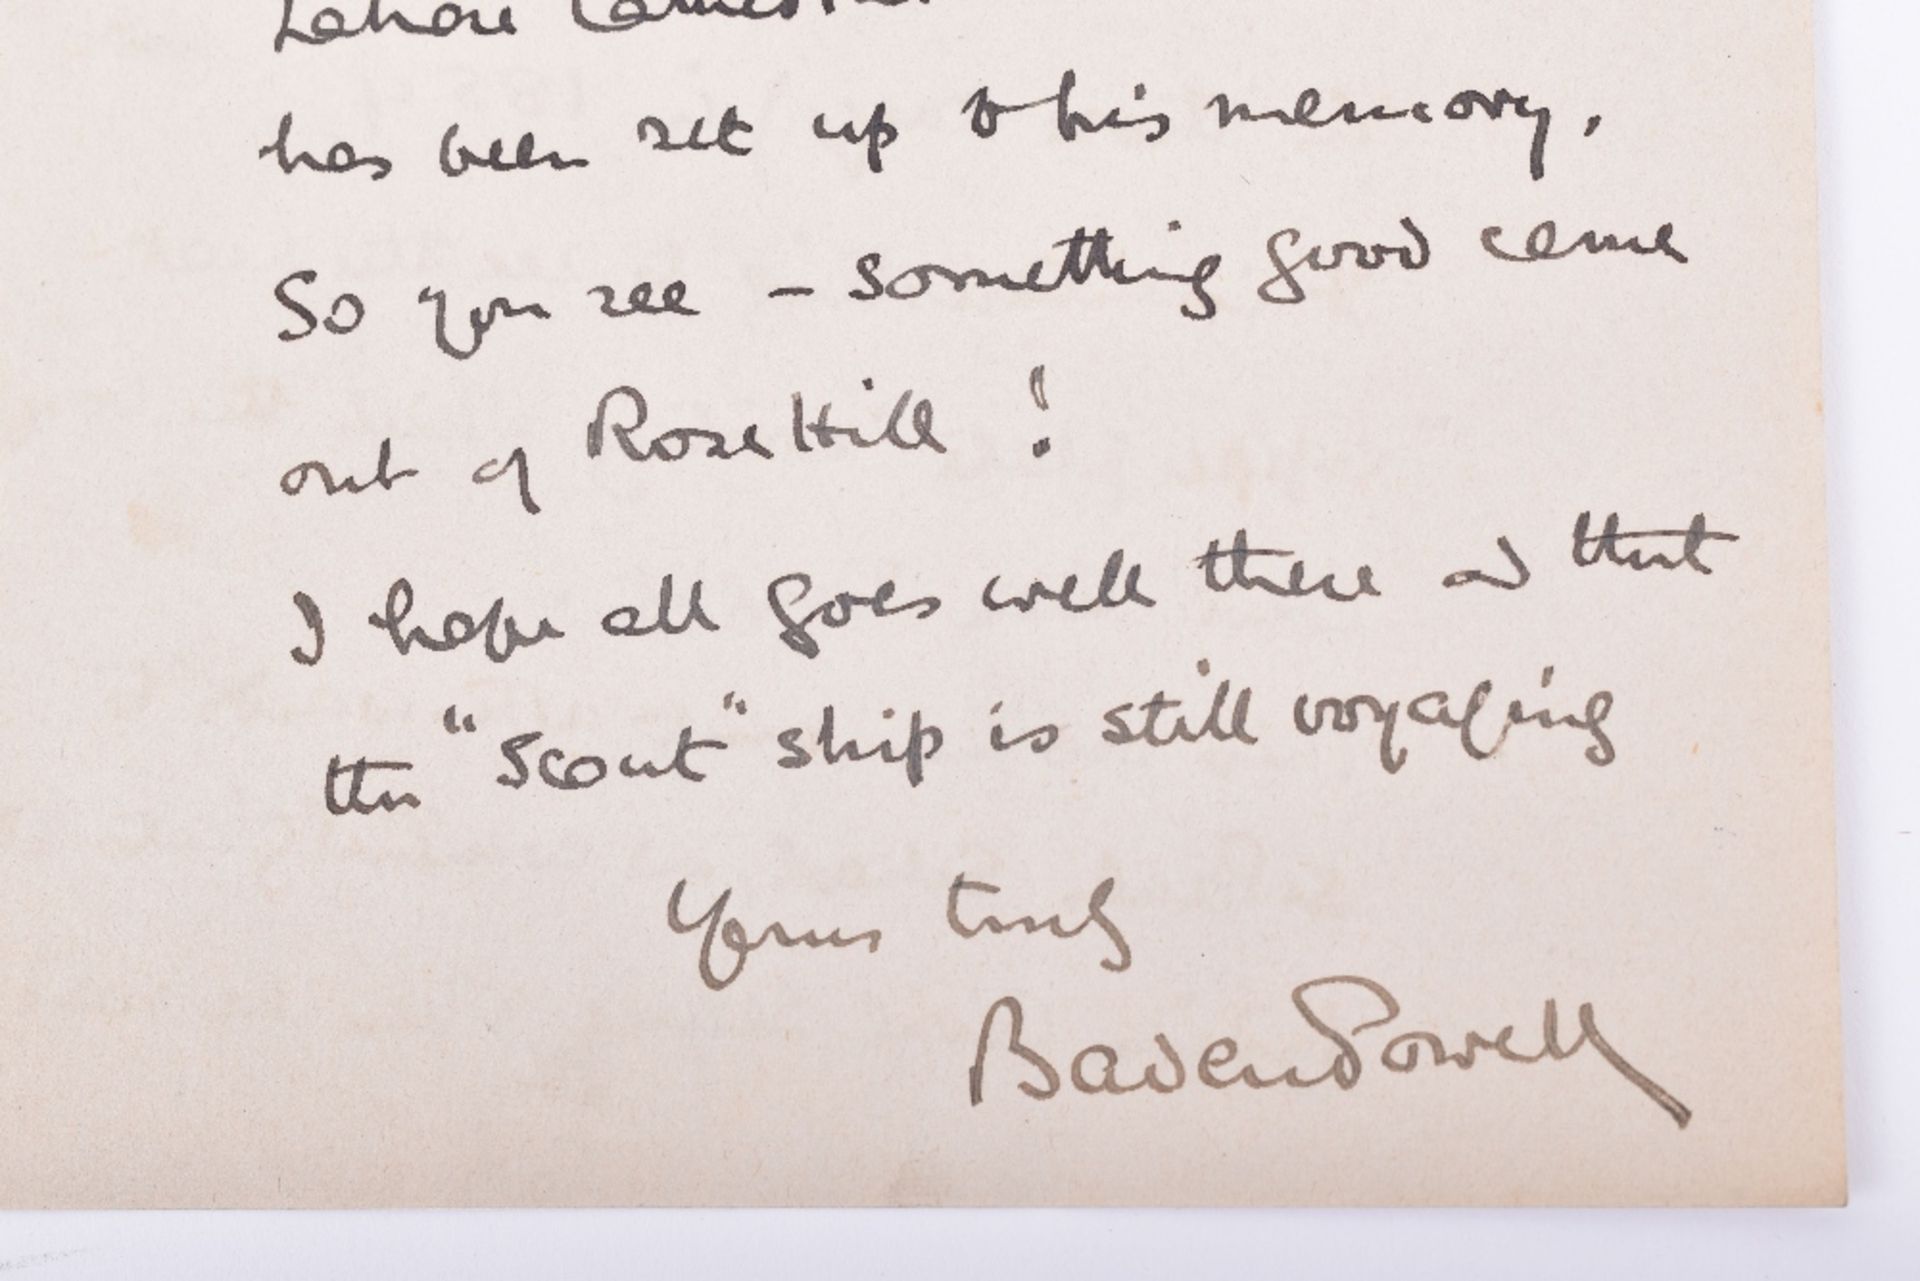 Lahore
has been set up to his memory.
So you see – something good came
out of Rose Hill !
I hope all goes well there and that
the "Scout" ship is still voyaging
Yours truly
Baden Powell